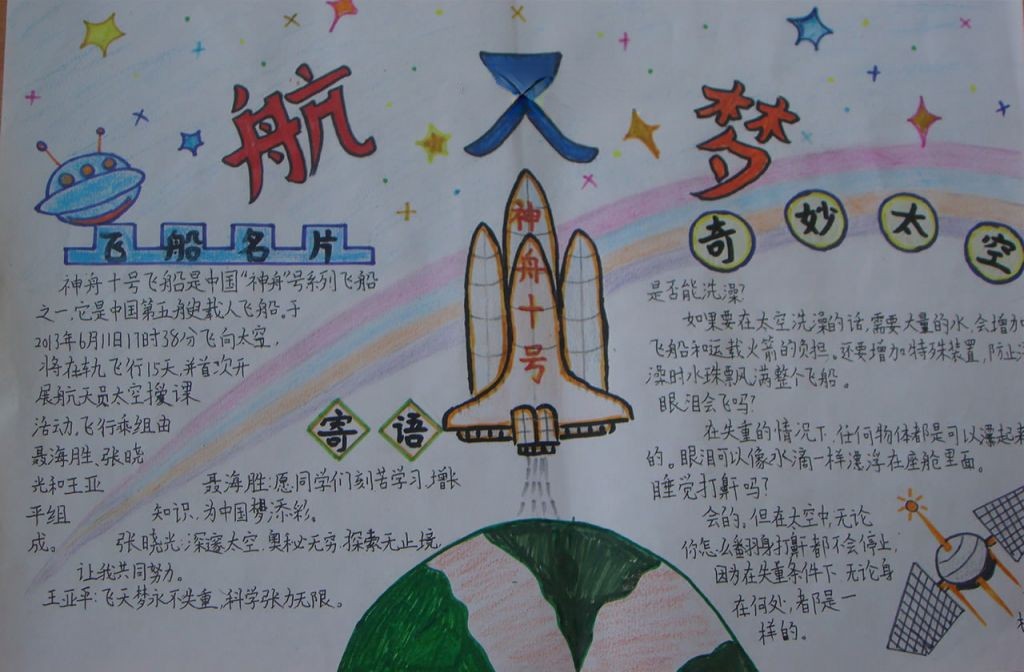 航天梦
飞船名片
神舟十号飞船是中国“神舟”号系列飞船
之一,它是中国第五艘载人飞船。于
2013年6月11日17时38分飞向太空,
将在轨飞行15天,并首次开
展航天员太空授课
活动,飞行乘组由
聂海胜、张晓
光和王亚
平组
成。
神舟十号
寄语
聂海胜:愿同学们刻苦学习,增长
知识,为中国梦添彩。
张晓光:深邃太空,奥秘无穷,探索无止境,
让我共同努力。
王亚平:飞天梦永不失重,科学张力无限。
奇妙太空
是否能洗澡?
如果要在太空洗澡的话,需要大量的水,会增加
飞船和运载火箭的负担。还要增加特殊装置,防止
澡时水珠飘满整个飞船。
眼泪会飞吗?
在失重的情况下,任何物体都是可以漂起来
的。眼泪可以像水滴一样漂浮在座舱里面。
睡觉打鼾吗?
会的。但在太空中,无论
你怎么翻身打鼾都不会停止,
因为在失重条件下,无论身
在何处,都是一
样的。